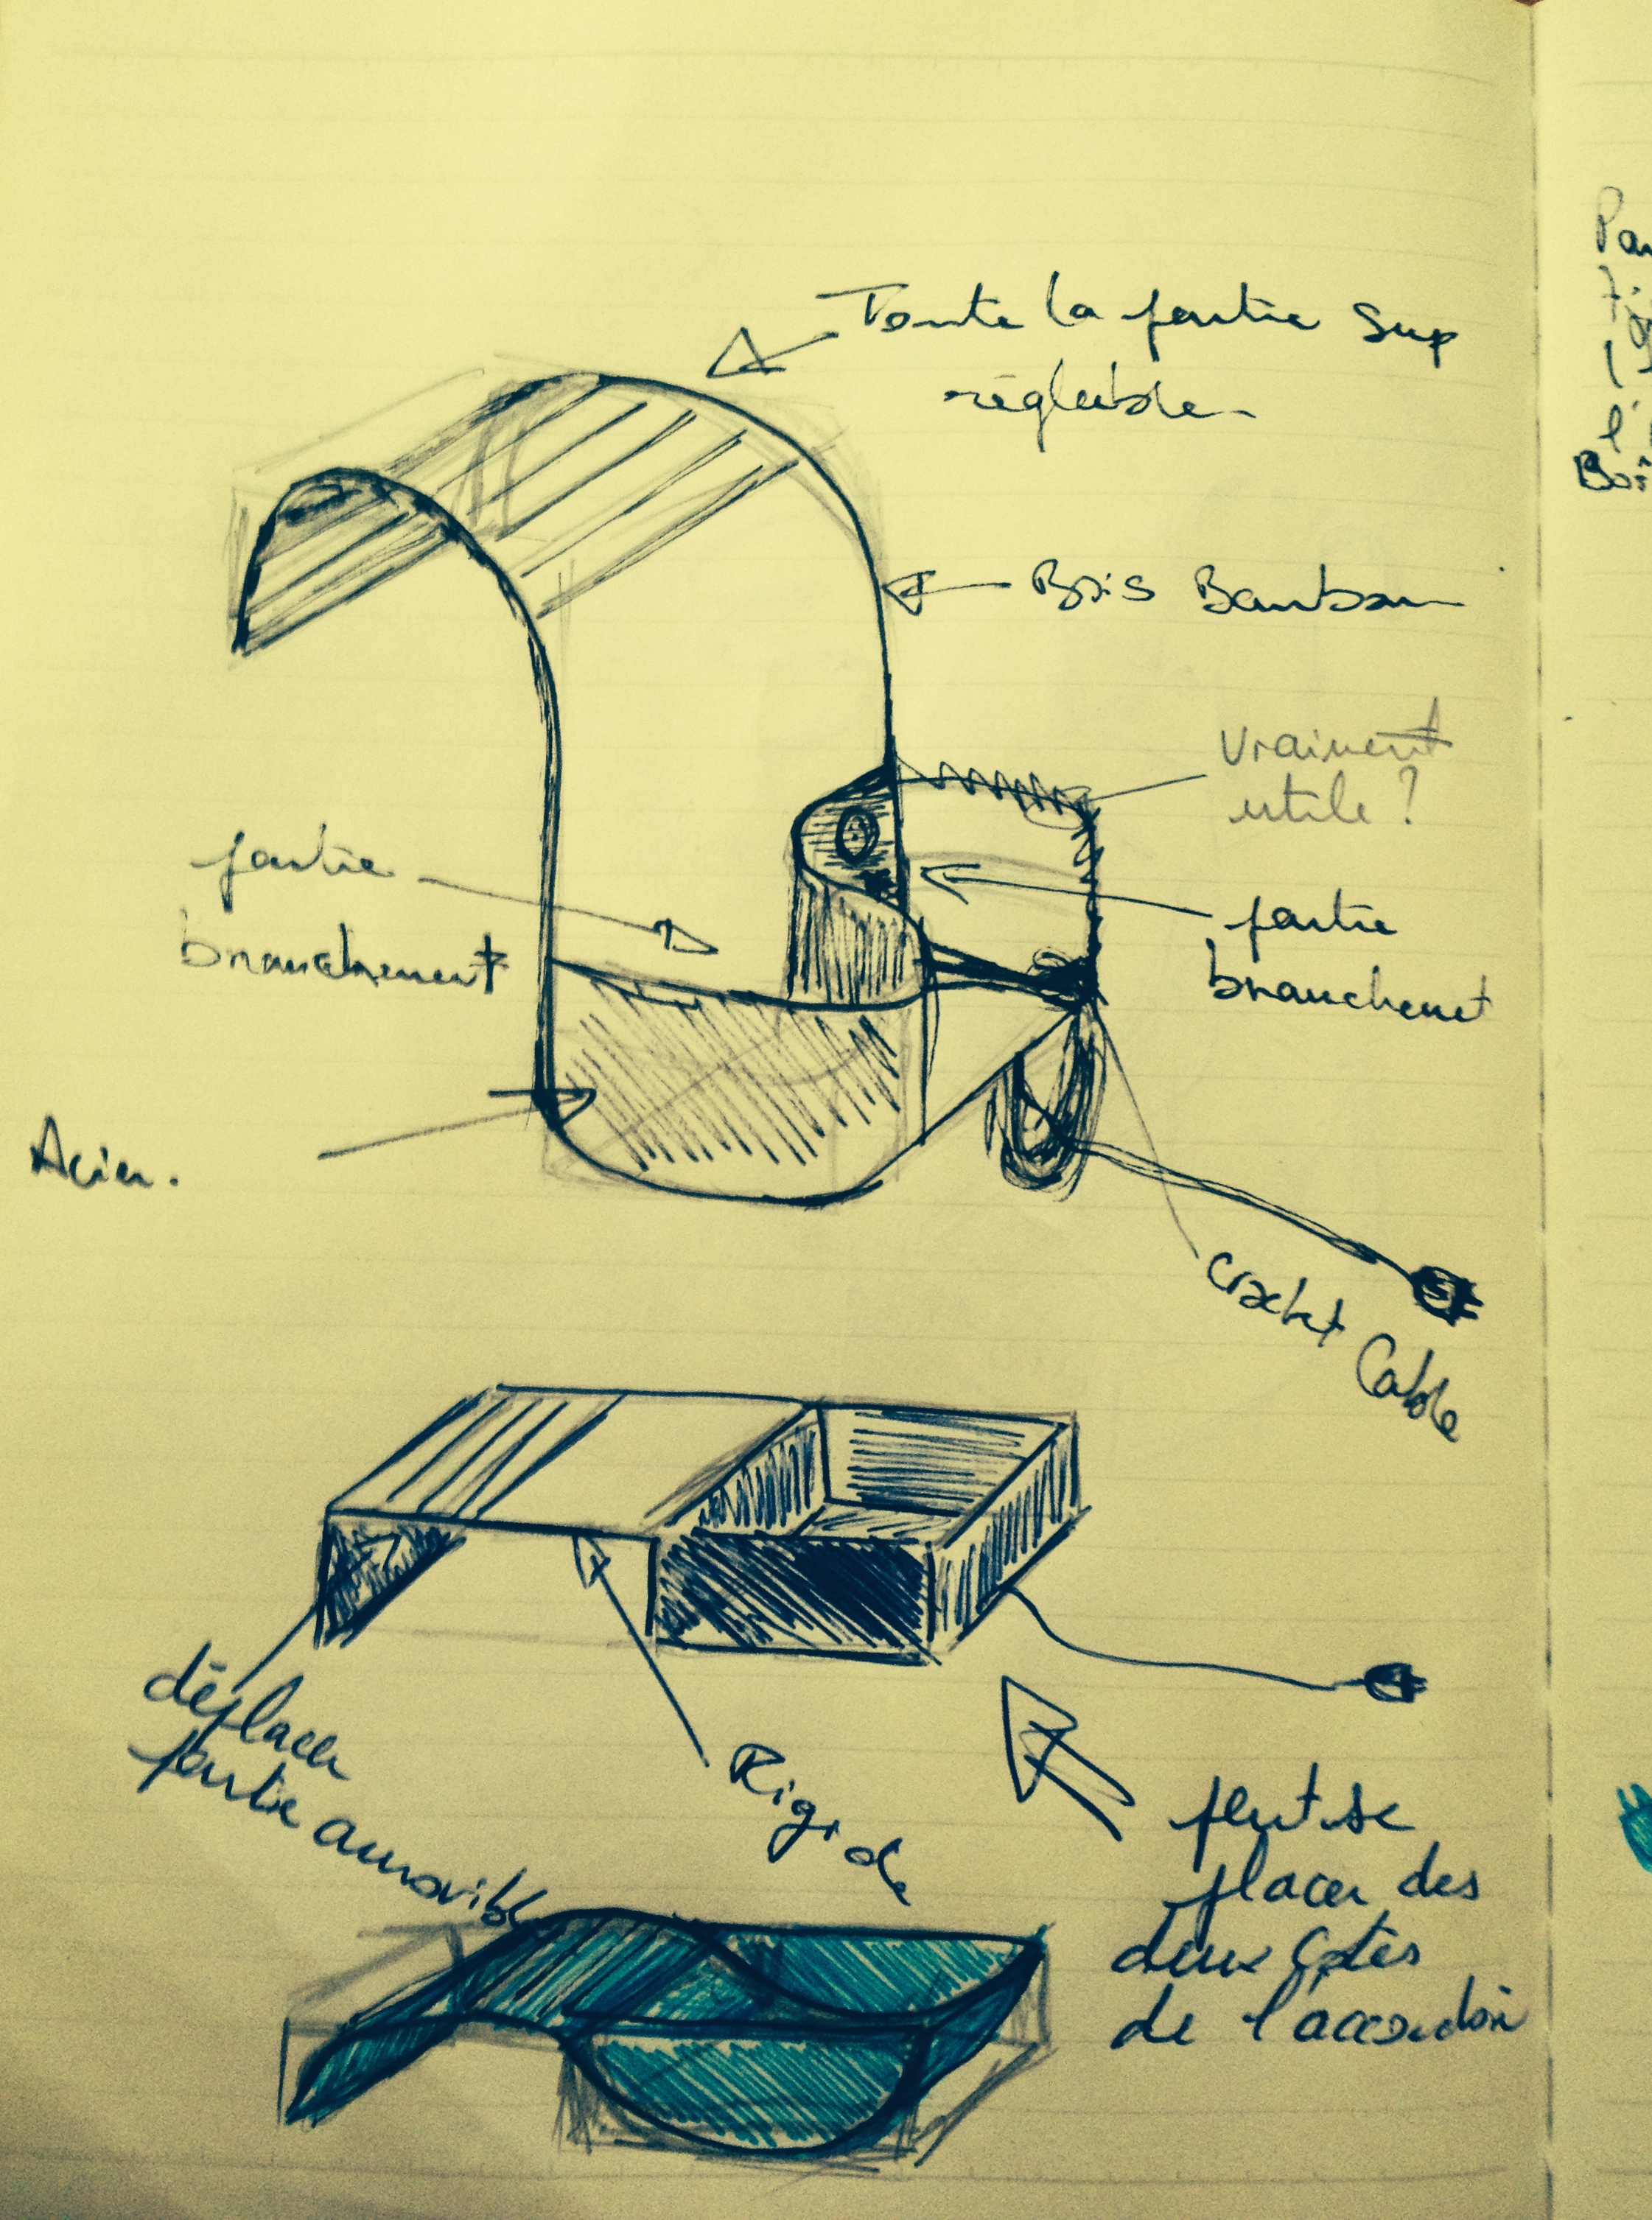 Toute la partie Sup
réglable
Bois Bambou
vraiment
utile ?
partie
branchement
partie
branchemet
Acier.
crochet Cable
déplacer
partie amovible
Rigide
peut se
placer des
deux côtés
de l'accoudoir